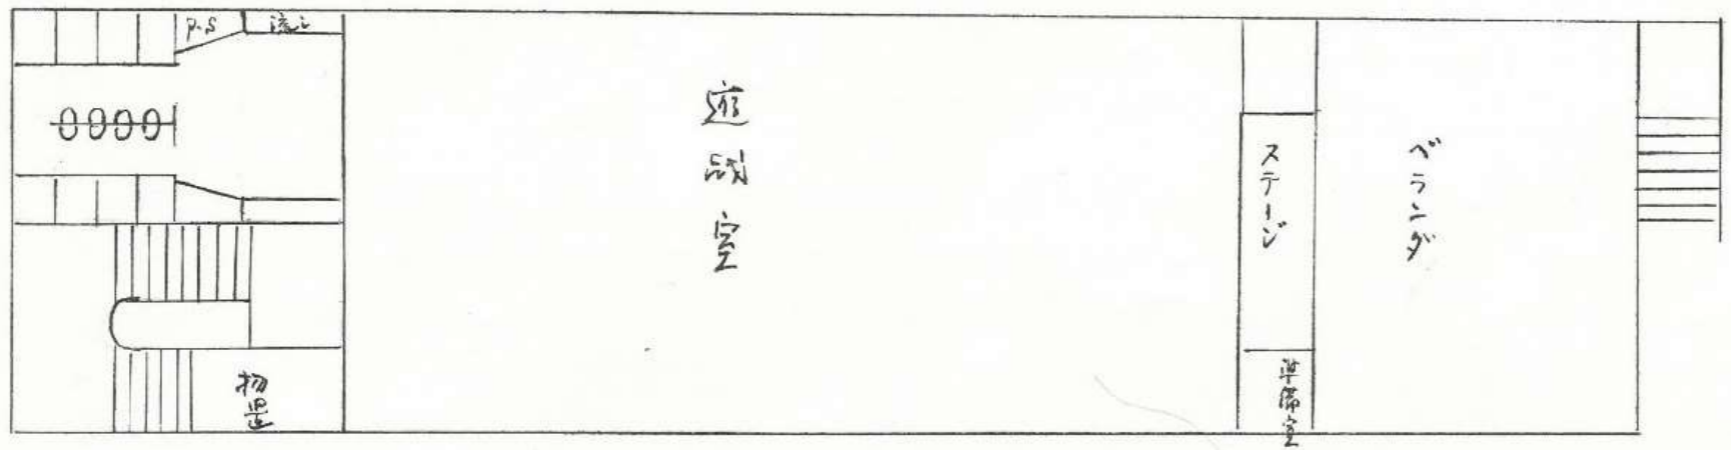 P.S
流し
遊戯室
ステージ
準備室
ベランダ
物置